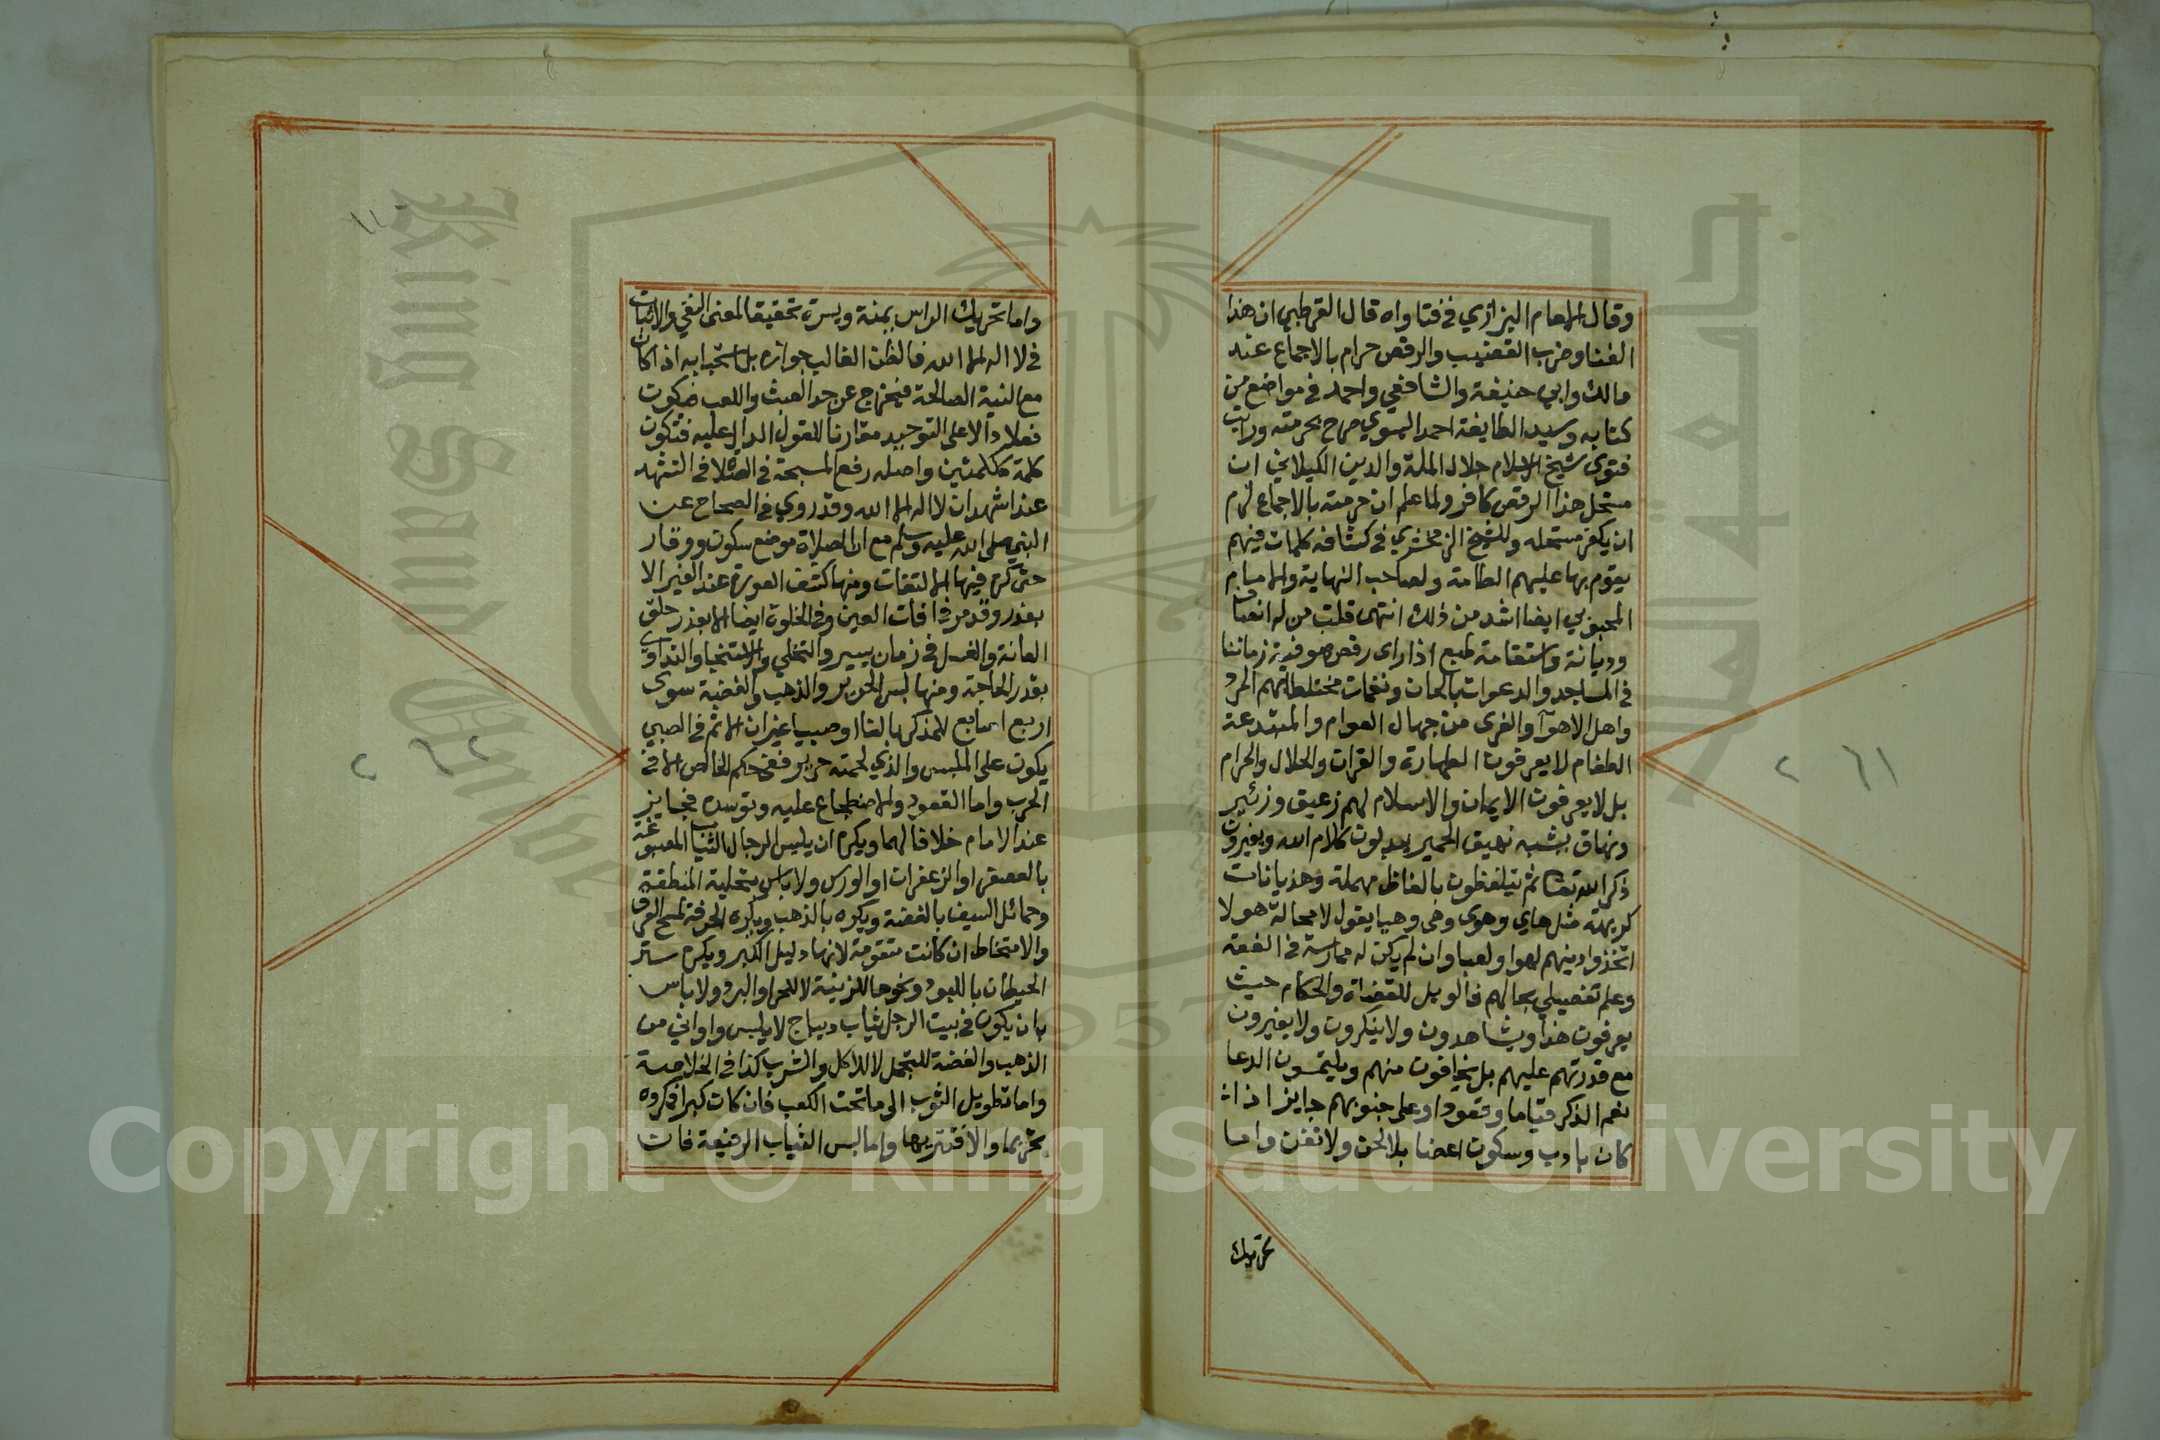 وقال الامام البزازي في فتاواه قال القرطبي ان هذا
الغنا وضرب القضيب والرقص حرام بالاجماع عند
مالك وابي حنيفة والشافعي واحمد في مواضع من
كتابه وسيد الطايفة احمد اليسوي صرح بحرمته ورايت
فتوى شيخ الاسلام جلال الملة والدين الكيلاني ان
مستحل هذا الرقص كافر ولما علم ان حرمته بالاجماع لزم
ان يكفر مستحله وللشيخ الزمخشري في كشافه كلمات فيهم
يقوم بها عليهم الطامة ولصاحب النهاية والامام
المحبوبي ايضا اشد من ذلك انتهى قلت من له انصاف
وديانة واستقامة طبع اذا راى رقص صوفية زماننا
في المساجد والدعوات بالحان ونغمات مختلطا بهم المرد
واهل الاهوآ والقرى من جهال العوام والمبتدعة
الطغام لا يعرفون الطهارة والقران والحلال والحرام
بل لا يعرفون الايمان والاسلام لهم زعيق وزئير
ونهاق يشبه نهيق الحمير يبدلون كلام الله ويغيرون
ذكر الله تعالى ثم يتلفظون بالفاظ مهملة وهذيانات
كريهة مثل هاي وهوي وهي وهيا يقول لا محالة هولا
اتخذوا دينهم لهوا ولعبا وان لم يكن له ممارسة في الفقه
وعلم تفصيلي بحالهم فالويل للقضاة والحكام حيث
يعرفون هذا ويشاهدون ولا ينكرون ولا يغيرون
مع قدرتهم عليهم بل يخافون منهم ويلتمسون الدعا
نعم الذكر قياما وقعودا وعلى جنوبهم جايز اذا
كان بادب وسكون اعضا بلا لحن ولا تغن واما
تحريك
٢٦١
واما تحريك الراس يمنة ويسرة تحقيقا لمعنى النفي والاثبات
في لا اله الا الله فالظن الغالب جوازه بل استحبابه اذا كان
مع النية الصالحة فيخرج عن حد العبث واللعب فيكون
فعلا دالا على التوحيد مقارنا للقول الدال عليه فتكون
كلمة ككلمتين واصله رفع المسبحة في الصلاة في التشهد
عند اشهد ان لا اله الا الله وقد روي في الصحاح عن
النبي صلى الله عليه وسلم مع ان الصلاة موضع سكون ووقار
حتى كره فيها الالتفات ومنها كشف العورة عند الغير الا
بعذر وقد مر في افات العين وفي الخلوة ايضا الا بعذر حلق
العانة والغسل في زمان يسير والتخلي والاستنجا والتداوي
بقدر الحاجة ومنها لبس الحرير والذهب والفضة سوى
اربع اصابع للمذكر بالغا او صبيا غير ان الاثم في الصبي
يكون على الملبس والذي لحمته حرير فغي حكم الخالص الا في
الحرب واما القعود والاضطجاع عليه وتوسده فجايز
عند الامام خلافا لهما ويكره ان يلبس الرجال الثياب المصبوغة
بالعصفر او الزعفران او الورس ولا باس بتحلية المنطقة
وحمائل السيف بالفضة ويكره بالذهب ويكره الخرقة لمسح العرق
والامتخاط ان كانت متقومة لانها دليل الكبر ويكره ستر
الحيطان باللبود ونحوها للزينة لا للحر او البرد ولا باس
بان يكون في بيت الرجل ثياب ديباج لا يلبس واواني من
الذهب والفضة للتجمل لا للاكل والشرب كذا في الخلاصة
واما تطويل الثوب الى ما تحت الكعب فان كان كبرا فمكروه
تحريما والا فتنزيها واما لبس الثياب الرفيعة فان
٢٦٢
Copyright © King Saud University
King Saud University
جامعة الملك
1957